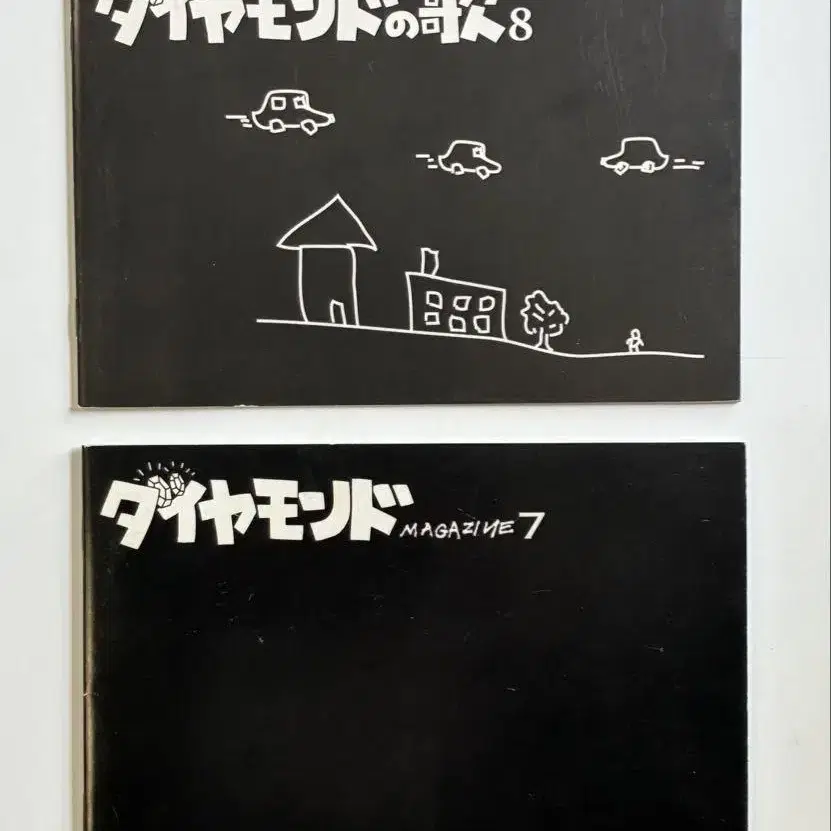 ダイヤモンドの歌8
ダイヤモンド MAGAZINE 7